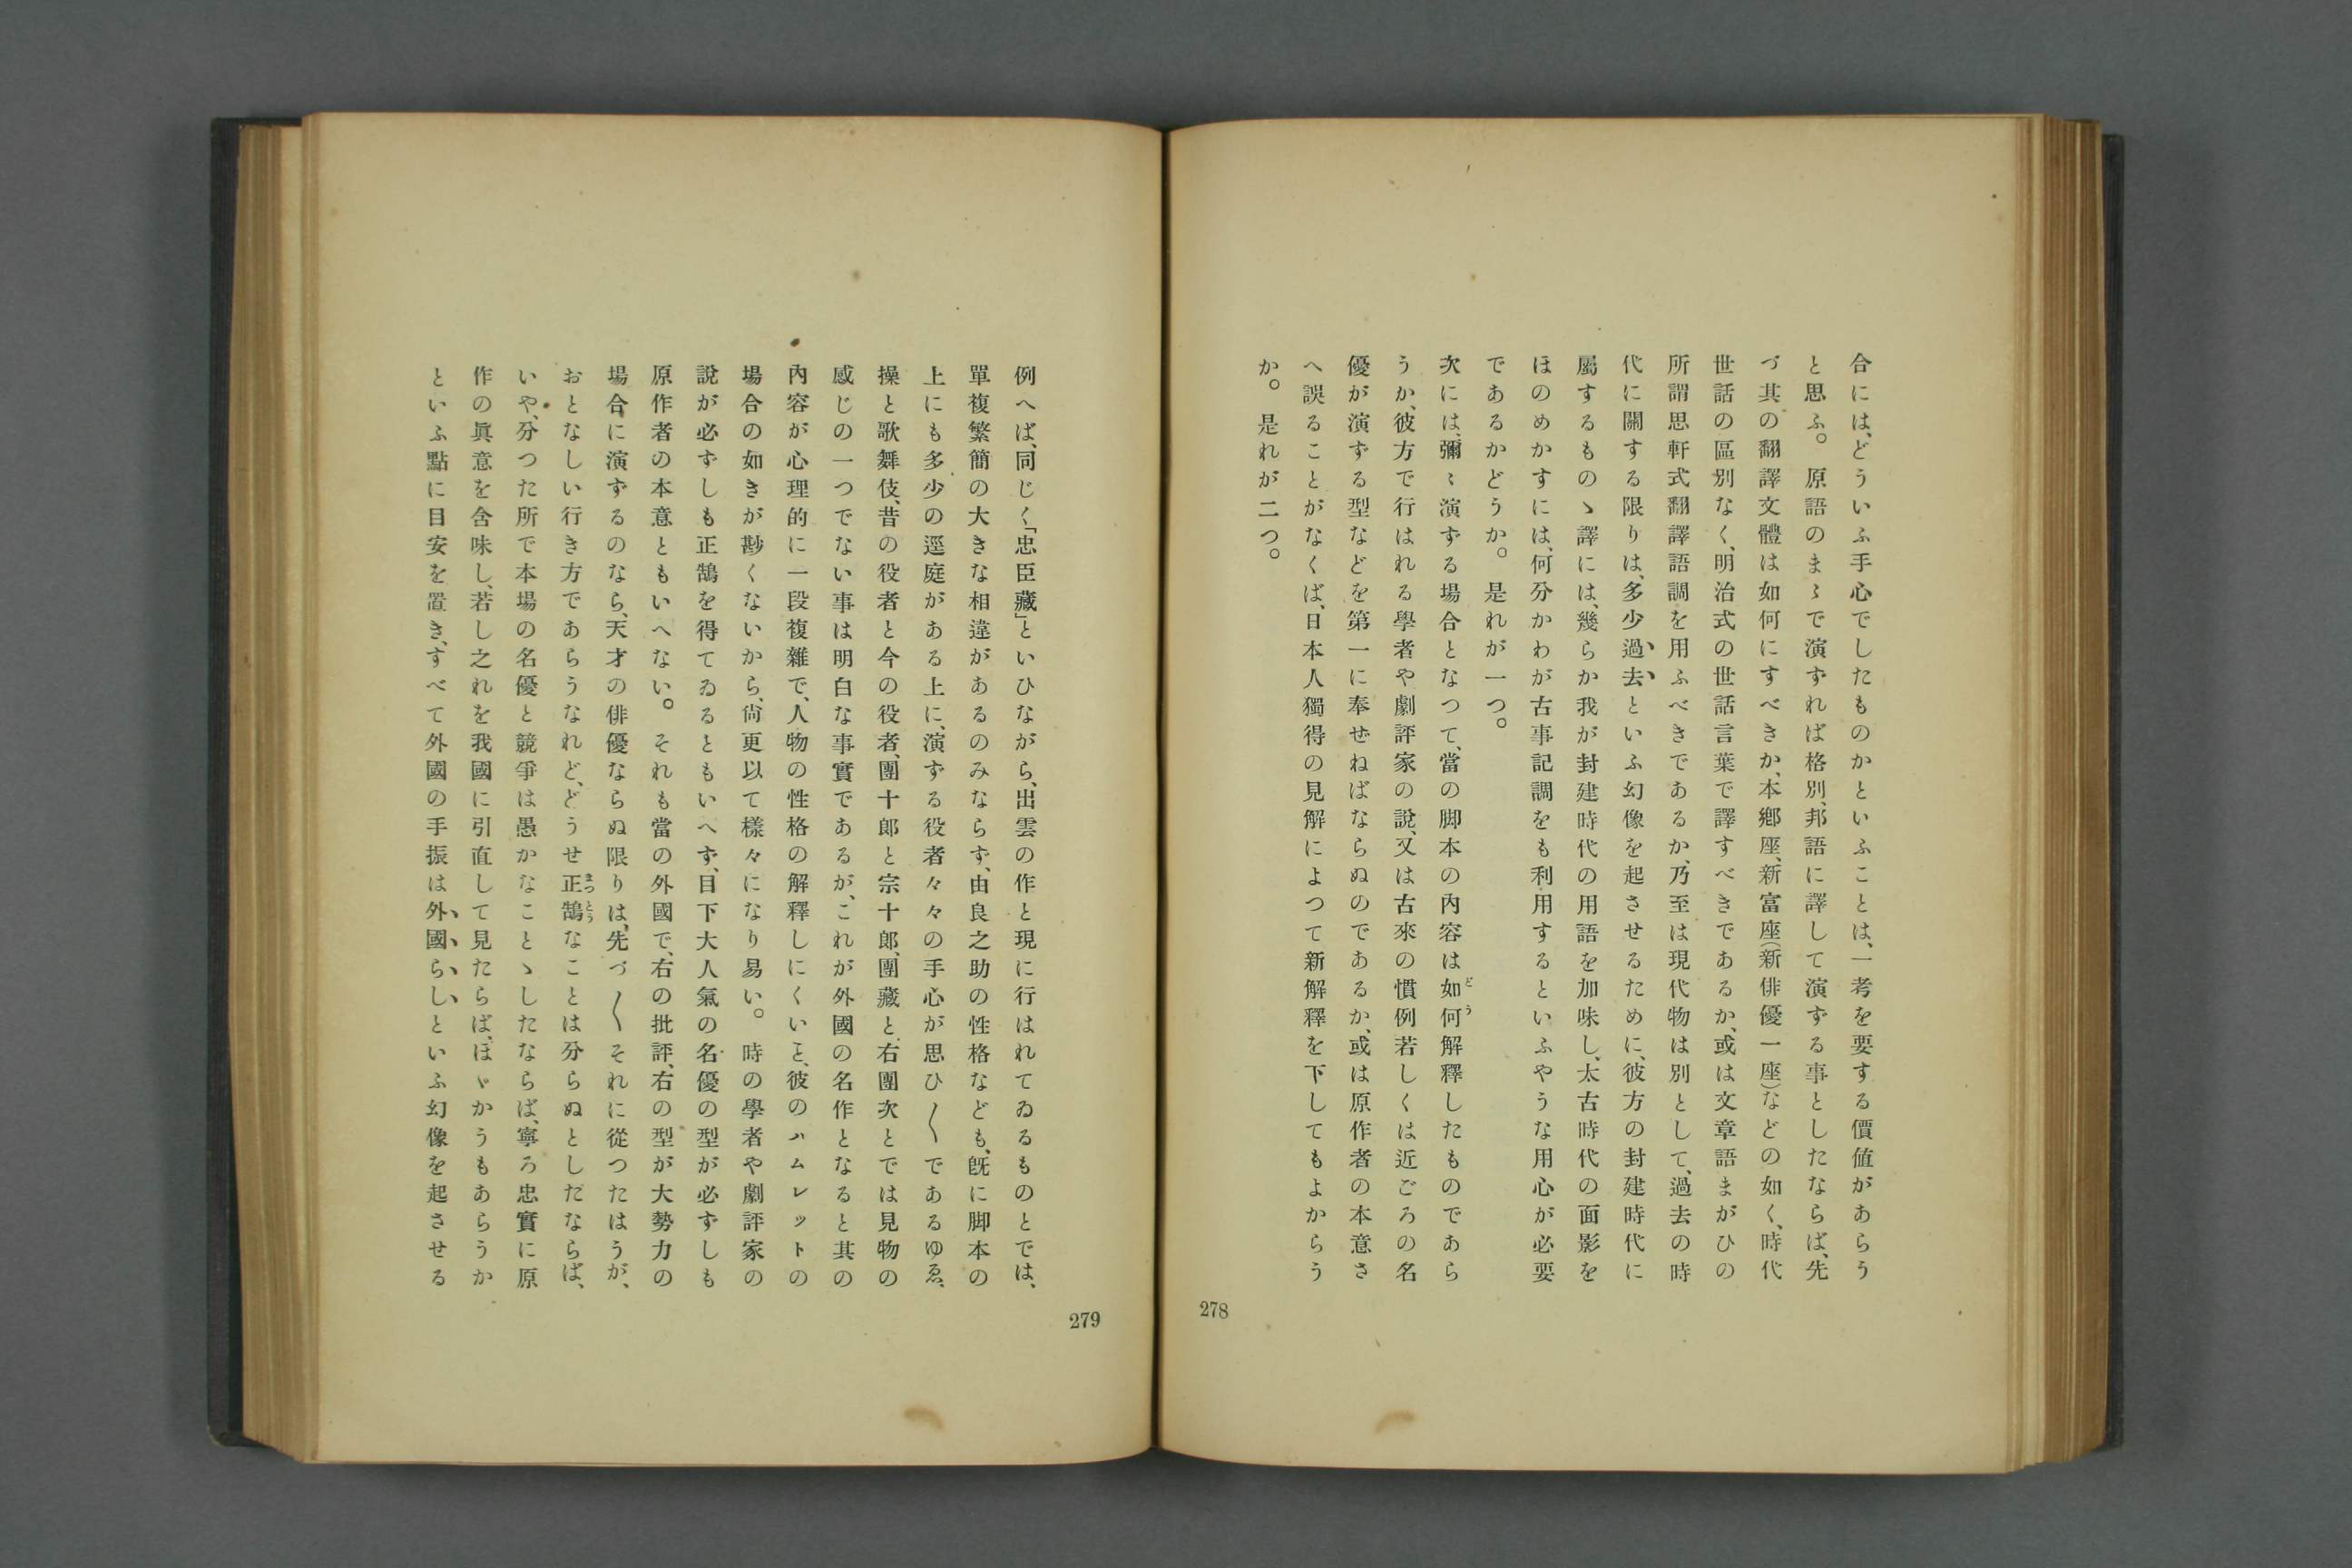 合には、どういふ手心でしたものかといふことは、一考を要する價値があらう
と思ふ。原語のまゝで演ずれば格別、邦語に譯して演ずる事としたならば、先
づ其の翻譯文體は如何にすべきか、本鄕座、新富座（新俳優一座）などの如く、時代
世話の區別なく、明治式の世話言葉で譯すべきであるか、或は文章語まがひの
所謂思軒式翻譯語調を用ふべきであるか、乃至は現代物は別として、過去の時
代に關する限りは、多少過去といふ幻像を起させるために、彼方の封建時代に
屬するものゝ譯には、幾らか我が封建時代の用語を加味し、太古時代の面影を
ほのめかすには、何分かわが古事記調をも利用するといふやうな用心が必要
であるかどうか。是れが一つ。
次には、彌〻演ずる場合となつて、當の脚本の內容は如何解釋したものであら
うか、彼方で行はれる學者や劇評家の說、又は古來の慣例若しくは近ごろの名
優が演ずる型などを第一に奉ぜねばならぬのであるか、或は原作者の本意さ
へ誤ることがなくば、日本人獨得の見解によつて新解釋を下してもよからう
か。是れが二つ。
278
例へば、同じく「忠臣藏」といひながら、出雲の作と現に行はれてゐるものとでは、
單複繁簡の大きな相違があるのみならず、由良之助の性格なども、旣に脚本の
上にも多少の逕庭がある上に、演ずる役者々々の手心が思ひ〱であるゆゑ、
操と歌舞伎、昔の役者と今の役者、團十郞と宗十郞、團藏と右團次とでは見物の
感じの一つでない事は明白な事實であるが、これが外國の名作となると其の
內容が心理的に一段複雜で、人物の性格の解釋しにくいこと、彼のハムレットの
場合の如きが尠くないから、尙更以て樣々になり易い。時の學者や劇評家の
說が必ずしも正鵠を得てゐるともいへず、目下大人氣の名優の型が必ずしも
原作者の本意ともいへない。それも當の外國で、右の批評、右の型が大勢力の
場合に演ずるのなら、天才の俳優ならぬ限りは、先づ〱それに從つたはうが、
おとなしい行き方であらうなれど、どうせ正鵠なことは分らぬとしたならば、
いや、分つた所で本場の名優と競爭は愚かなことゝしたならば、寧ろ忠實に原
作の眞意を含味し、若し之れを我國に引直して見たらば、ほゞかうもあらうか
といふ點に目安を置き、すべて外國の手振は外國らしいといふ幻像を起させる
279